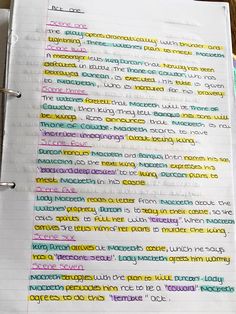 Act One
Scene One
The play opens dramatically with thunder and
lightning. Three witches plan to meet Macbeth
Scene Two
A messenger tells King Duncan that Norway has been
defeated in battle. The Thane of Cawdor, who
betrayed Duncan, is executed. His title is given
to Macbeth, who is honoured for his bravery.
Scene Three
The witches foretell that Macbeth will be Thane of
Cawdor, then King. They tell Banquo his sons will
be kings. Ross announces that Macbeth is now
Thane of Cawdor. Macbeth starts to have
"horrible imaginings" about being king.
Scene Four
Duncan thanks Macbeth and Banquo, then names his son,
Malcolm, as the next king. Macbeth expresses his
"black and deep desires" to be king. Duncan plans to
meet Macbeth in his castle.
Scene Five
Lady Macbeth reads a letter from Macbeth about the
witches' prophecy. Duncan is to stay in their castle, so she
calls spirits to fill her with "cruelty". When Macbeth
arrives she tells him of her plans to murder the king.
Scene Six
King Duncan arrives at Macbeth's castle, which he says
has a "pleasant seat". Lady Macbeth greets him warmly
Scene Seven
Macbeth struggles with the plan to kill Duncan. Lady
Macbeth persuades him not to be a "coward". Macbeth
agrees to do this "terrible" act.